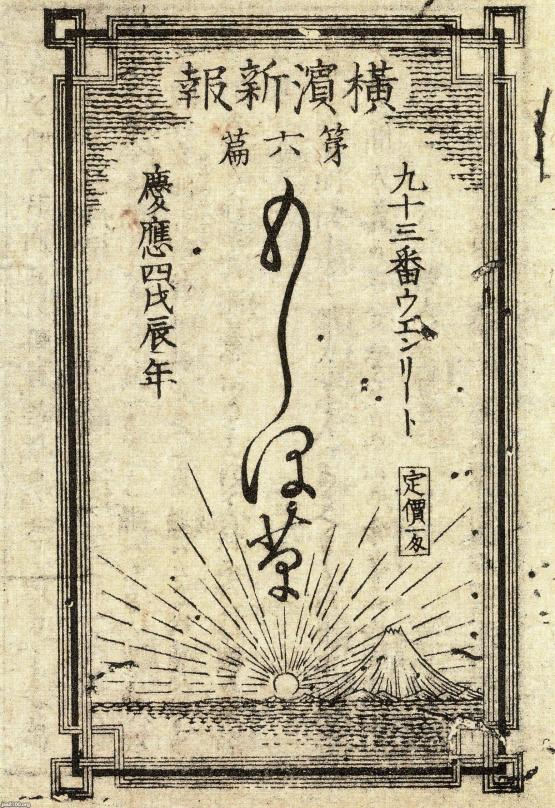 橫濱新報
第六篇
九十三番ウエンリート
定價一匁
もしほ草
慶應四戊辰年
jaa2100.org